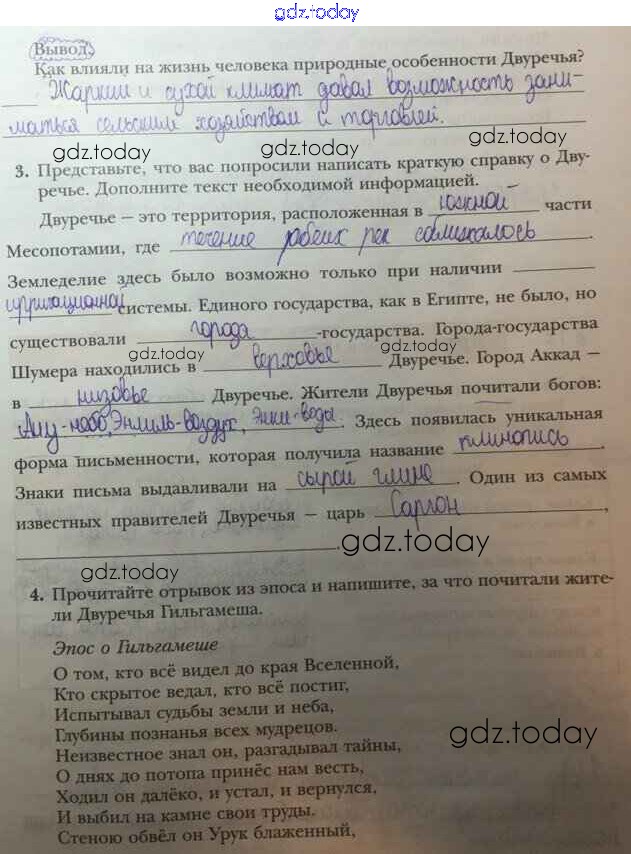 gdz.today
Вывод.
Как влияли на жизнь человека природные особенности Двуречья?
Жаркий и сухой климат давал возможность зани-
маться сельским хозяйствам и торговлей.
gdz.today
gdz.today
3. Представьте, что вас попросили написать краткую справку о Дву-
речье. Дополните текст необходимой информацией.
Двуречье — это территория, расположенная в южной части
Месопотамии, где течение рек сближалось.
Земледелие здесь было возможно только при наличии
ирригационной системы. Единого государства, как в Египте, не было, но
существовали города-государства. Города-государства
gdz.today
gdz.today
Шумера находились в верховье Двуречье. Город Аккад —
в низовье Двуречье. Жители Двуречья почитали богов:
Ану-небо, Энлиль-воздух, Энки-воды. Здесь появилась уникальная
форма письменности, которая получила название клинопись.
Знаки письма выдавливали на сырой глине. Один из самых
известных правителей Двуречья — царь Саргон,
gdz.today
gdz.today
4. Прочитайте отрывок из эпоса и напишите, за что почитали жите-
ли Двуречья Гильгамеша.
Эпос о Гильгамеше
О том, кто всё видел до края Вселенной,
Кто скрытое ведал, кто всё постиг,
Испытывал судьбы земли и неба,
Глубины познанья всех мудрецов.
gdz.today
Неизвестное знал он, разгадывал тайны,
О днях до потопа принёс нам весть,
Ходил он далёко, и устал, и вернулся,
И выбил на камне свои труды.
Стеною обвёл он Урук блаженный,